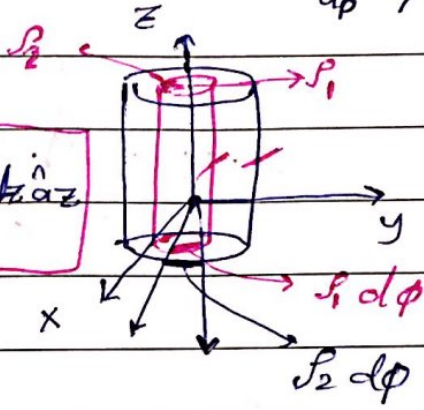 z
ρ2
ρ1
z âz
y
x
ρ1 dφ
ρ2 dφ